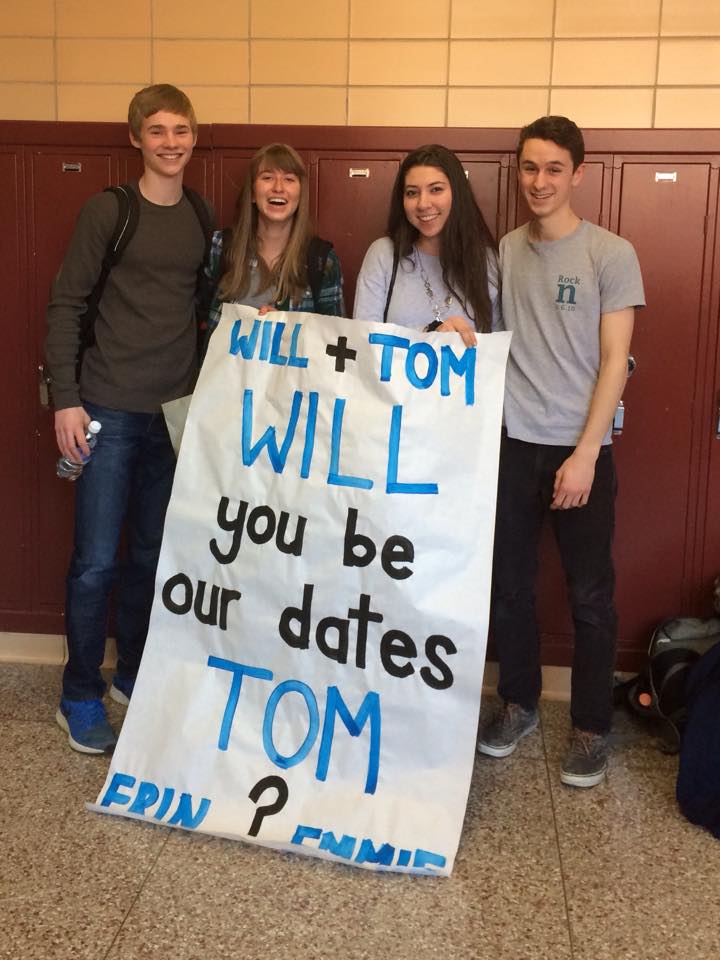 WILL + TOM
WILL
you be
our dates
TOM
?
ERIN EMMIE
Rock
n